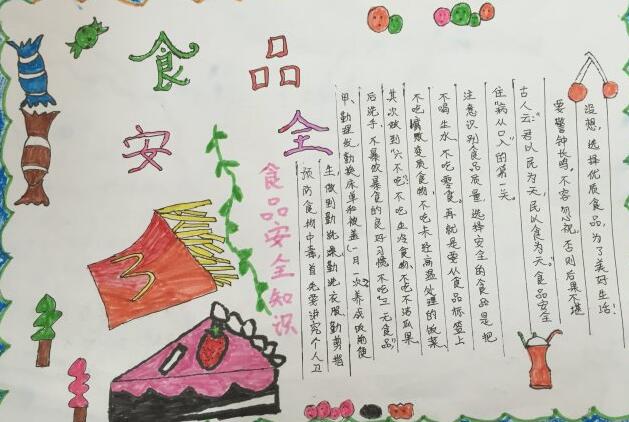 食品
安全
食品安全知识
预防食物中毒,首先要讲究个人卫
生,做到勤洗澡勤洗衣服勤剪指
甲、勤理发勤换床单和被盖(一月一次)养成饭前便
后洗手,不暴饮暴食的良好习惯不吃"三无食品",
其次做到"六不吃",不吃生冷食物不吃不洁瓜果
不吃腐败变质食物不吃未经高温处理的饭菜
不喝生水 不吃零食。再就是要从食品标签上
注意识别食品质量 选择安全的食品是把
住"病从口入"的第一关。
古人云:"君以民为天民以食为天。"食品安全
要警钟长鸣,不容忽视,否则后果不堪
设想,选择优质食品,为了美好生活!